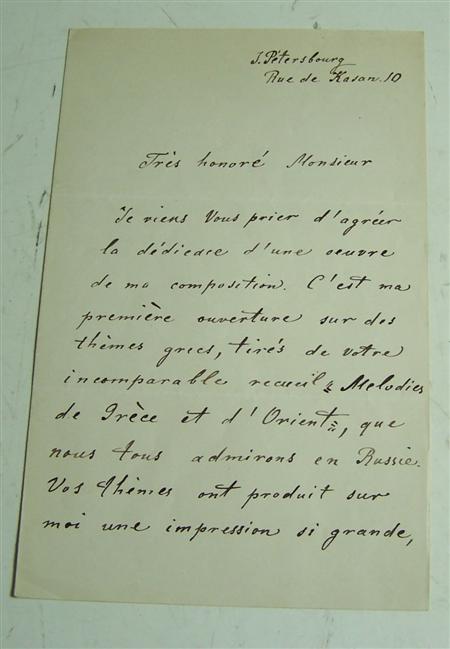 S. Pétersbourg
Rue de Kasan. 10
Très honoré Monsieur
Je viens Vous prier d'agréer
la dédicace d'une oeuvre
de ma composition. C'est ma
première ouverture sur des
thèmes grecs, tirés de votre
incomparable recueil „Melodies
de Grèce et d'Orient", que
nous tous admirons en Russie.
Vos thèmes ont produit sur
moi une impression si grande,